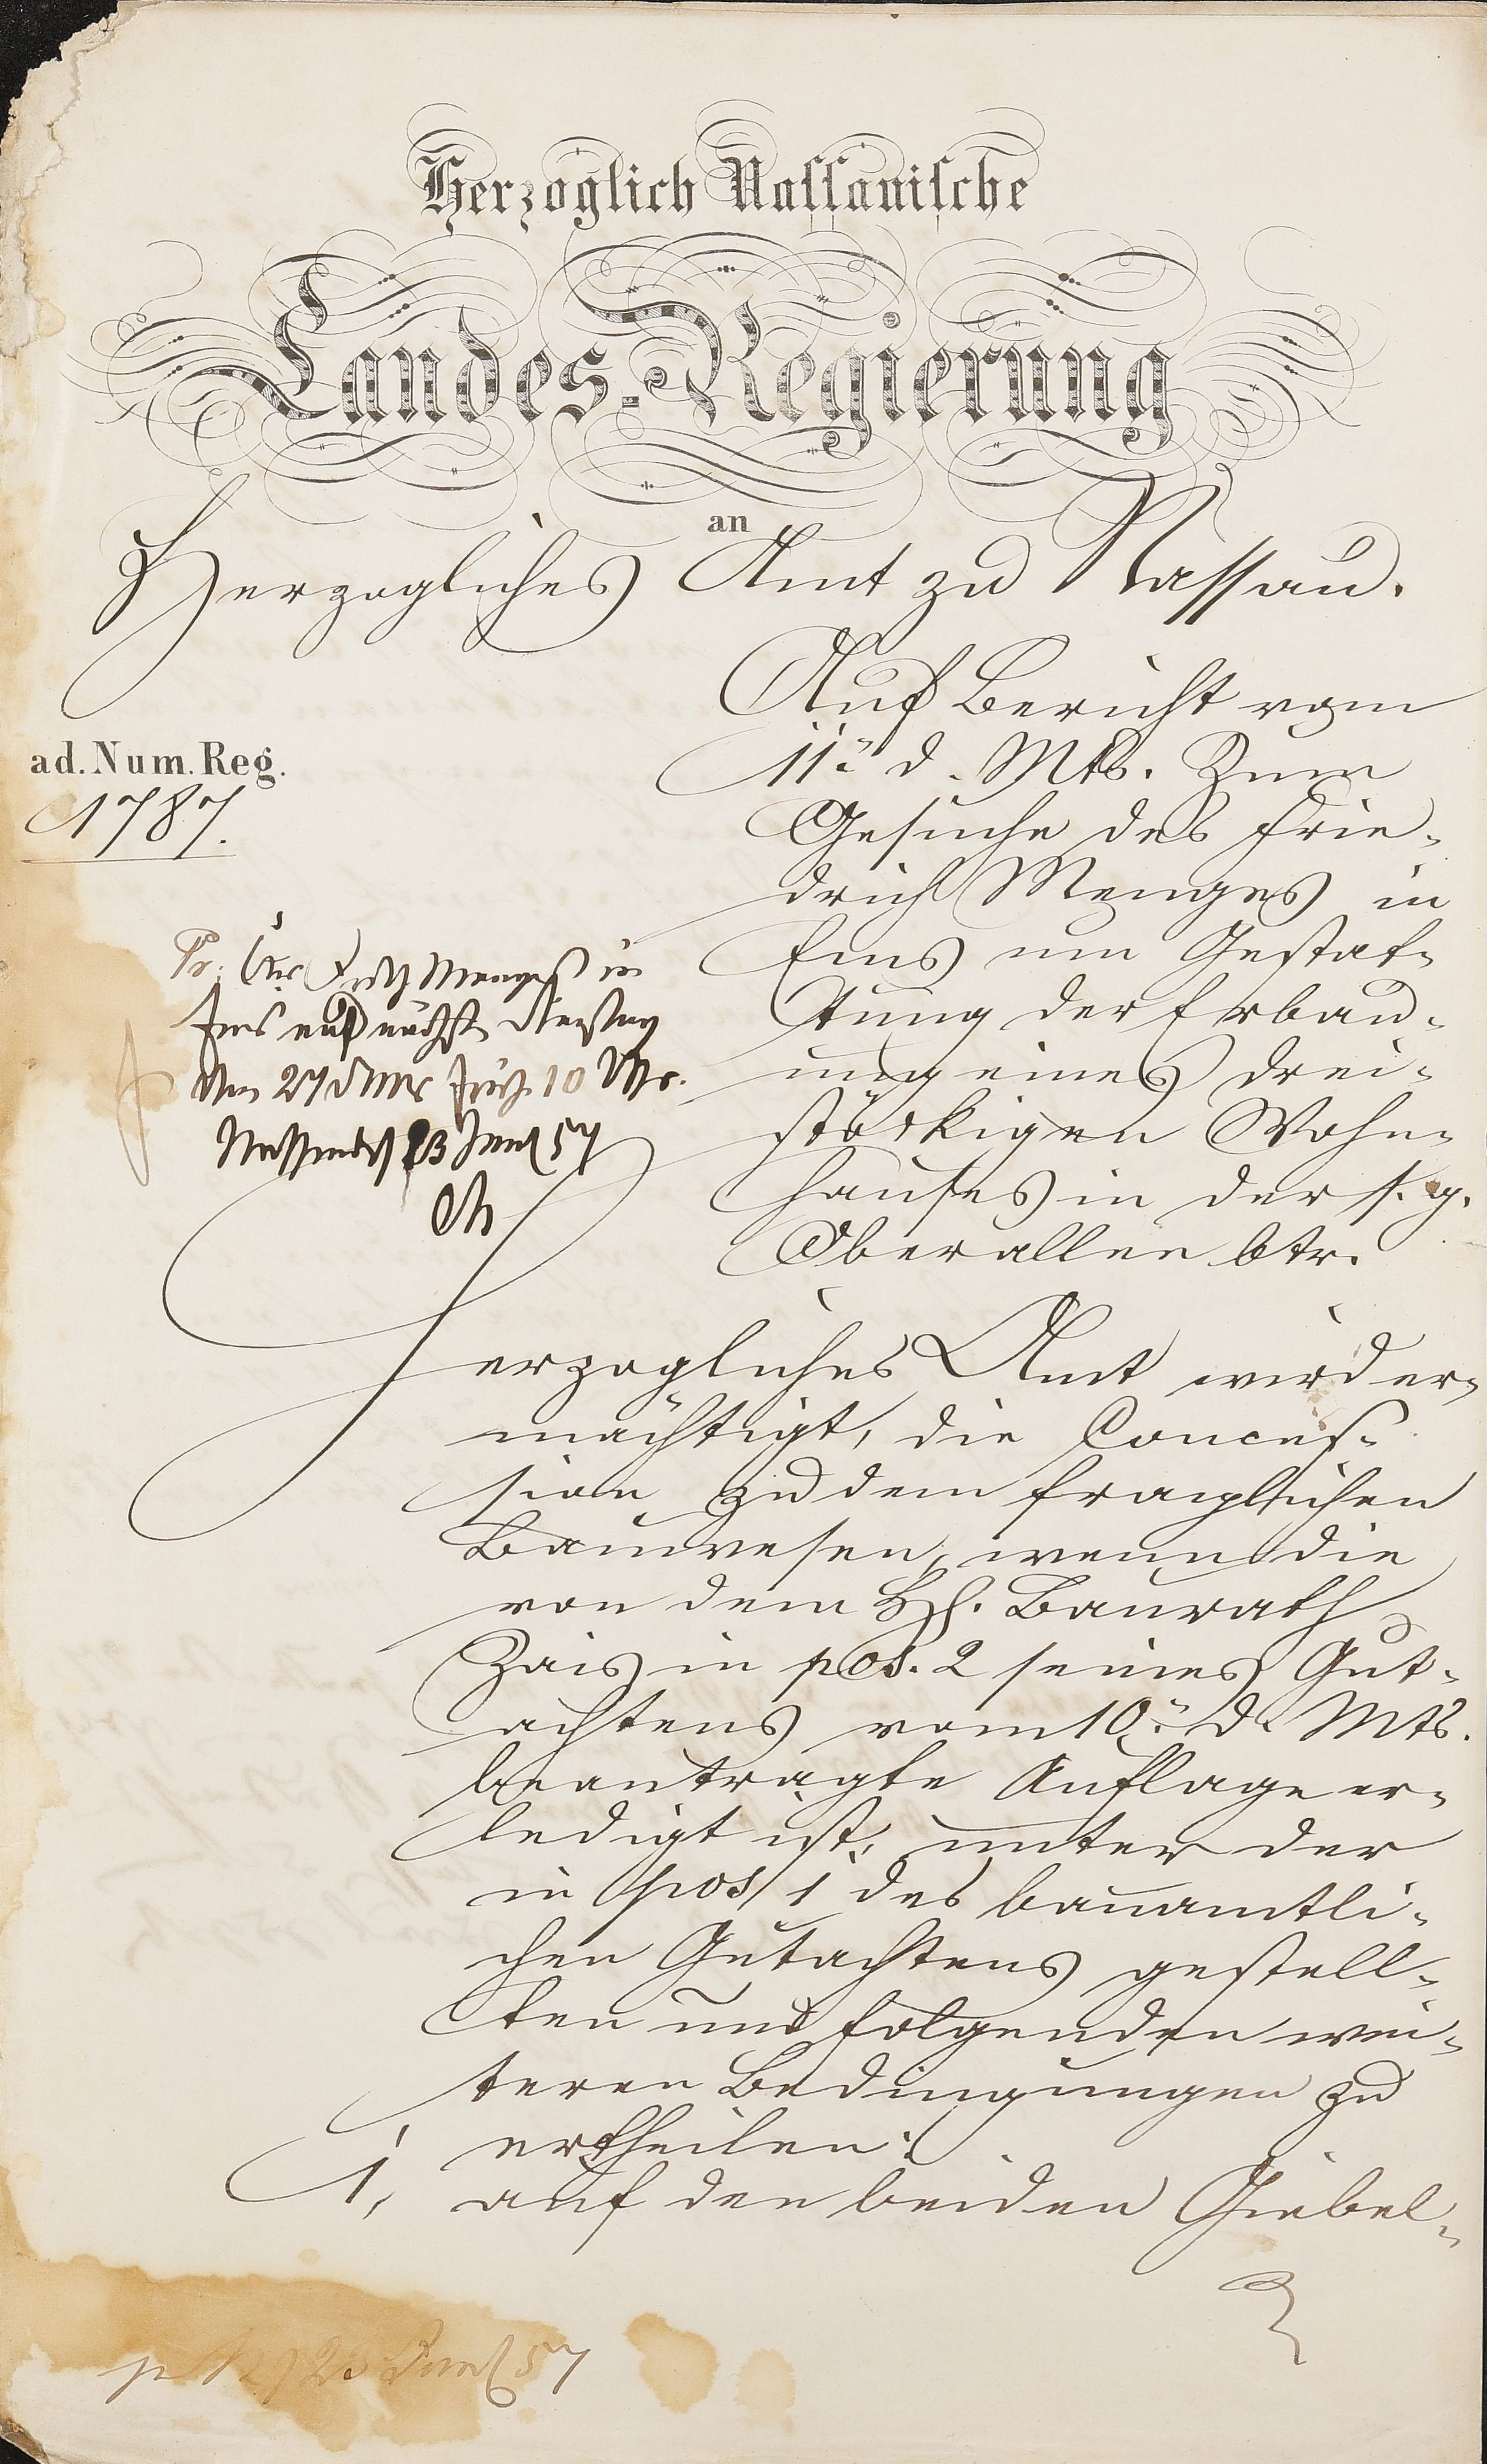 Herzoglich Nassauische
Landes-Regierung
an
Herzogliches Amt zu Nassau.
Auf Bericht vom
11. d. Mts. zum
Gesuche des Frie-
drich Menges in
Ems um Gestat-
tung der Erbau-
ung eines drei-
stöckigen Wohn-
hauses in der s. g.
Oberallee btr.
ad. Num. Reg.
1787.
Fritz Menges in
Ems auf nächsten Dienstag
den 27 früh 10 Uhr.
Nassau d 23 Juni 57
Herzogliches Amt wird er-
mächtigt, die Conces-
sion zu dem fraglichen
Bauwesen, wenn die
von dem Hzl. Baurath
Zais in pos. 2 seines Gut-
achtens vom 10. d. Mts.
beantragte Auflage er-
ledigt ist, unter der
in pos 1 des bauamtli-
chen Gutachtens gestell-
ten und folgenden wei-
teren Bedingungen zu
ertheilen:
1, auf den beiden Giebel-
23 Juni 57